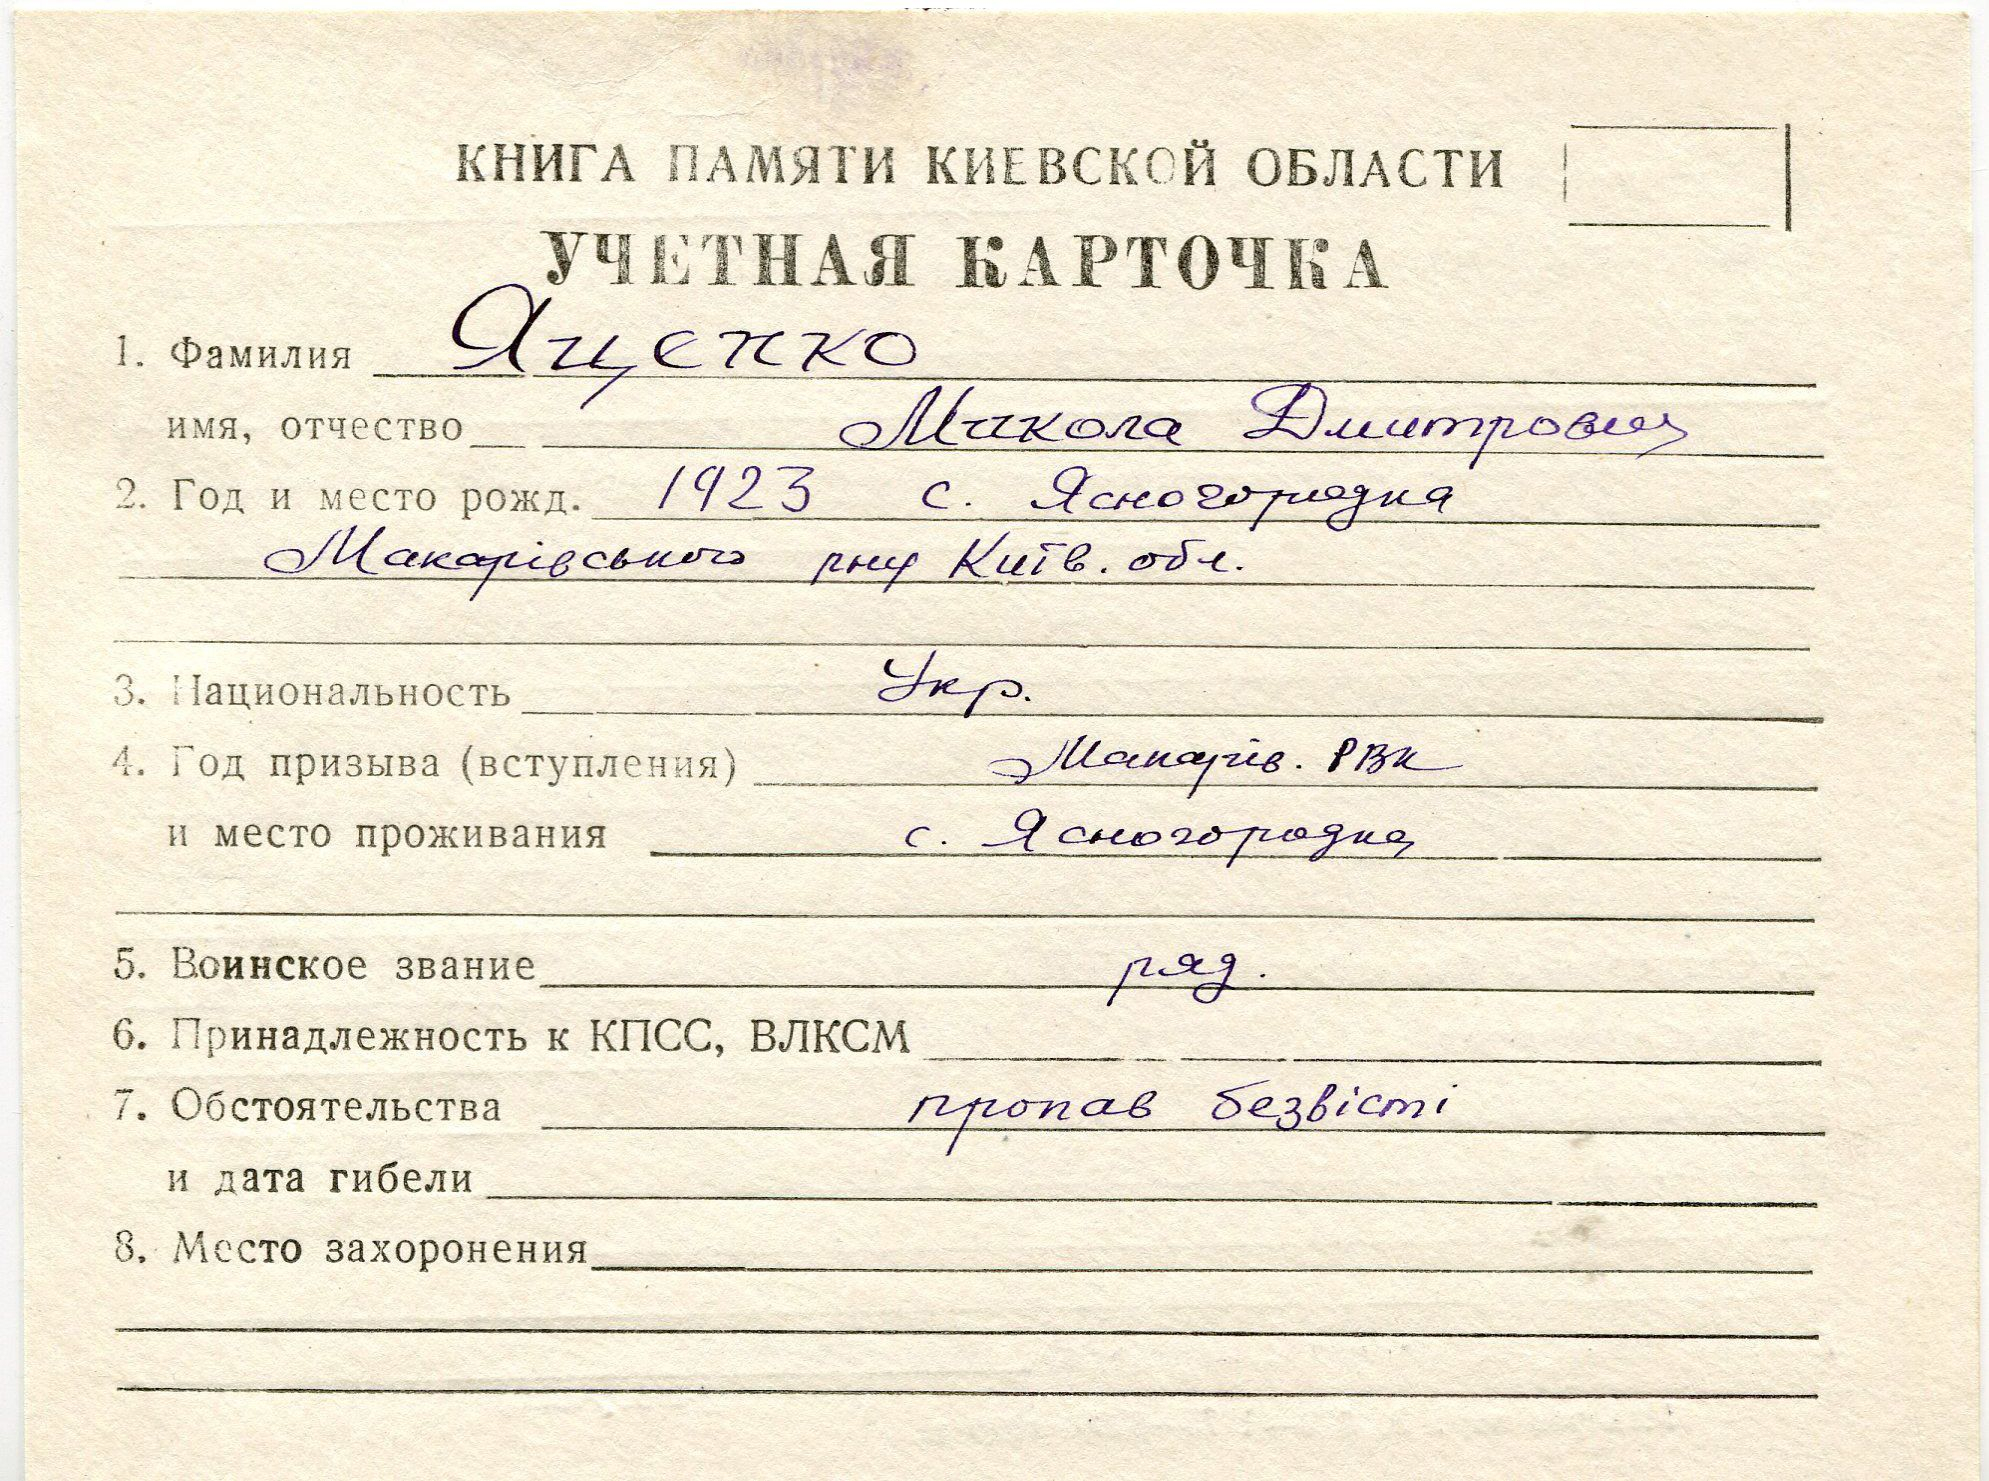 КНИГА ПАМЯТИ КИЕВСКОЙ ОБЛАСТИ
УЧЕТНАЯ КАРТОЧКА
1. Фамилия Яценко
имя, отчество Микола Дмитрович
2. Год и место рожд. 1923 с. Ясногородка
Макарівського рну Київ. обл.
3. Национальность Укр.
4. Год призыва (вступления) Макарів. РВК
и место проживания с. Ясногородка
5. Воинское звание ряд.
6. Принадлежность к КПСС, ВЛКСМ
7. Обстоятельства пропав безвісті
и дата гибели
8. Место захоронения